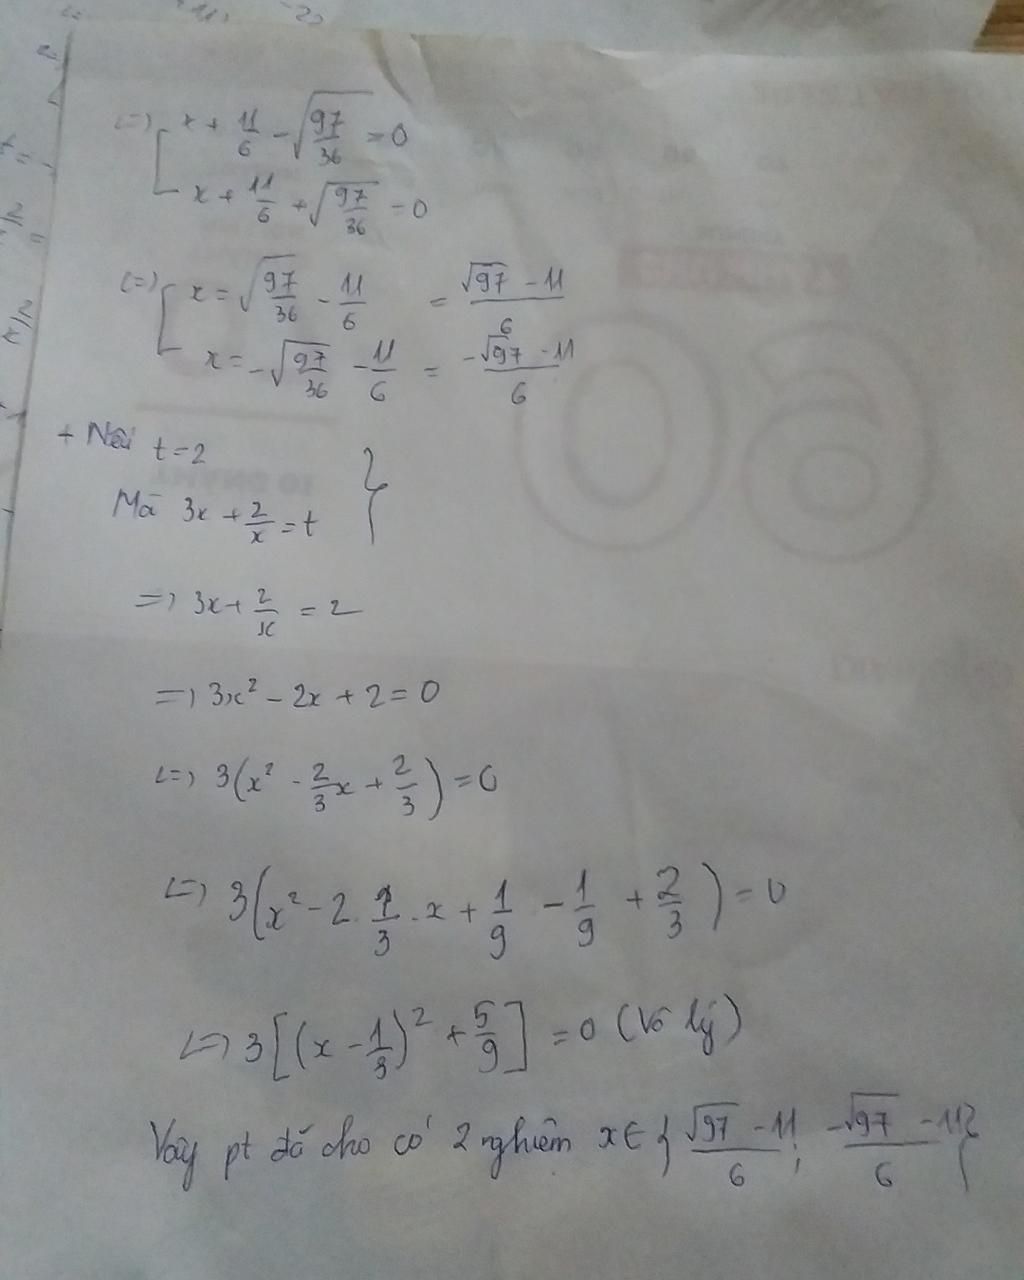 <=> [ x + 11/6 - √(97/36) = 0
x + 11/6 + √(97/36) = 0
<=> [ x = √(97/36) - 11/6 = (√97 - 11)/6
x = -√(97/36) - 11/6 = (-√97 - 11)/6
+ Nếu t = 2 }
Mà 3x + 2/x = t
=> 3x + 2/x = 2
=> 3x² - 2x + 2 = 0
<=> 3(x² - 2/3 x + 2/3) = 0
<=> 3(x² - 2 . 1/3 . x + 1/9 - 1/9 + 2/3) = 0
<=> 3[(x - 1/3)² + 5/9] = 0 (Vô lý)
Vậy pt đã cho có 2 nghiệm x ∈ { (√97 - 11)/6 ; (-√97 - 11)/6 }